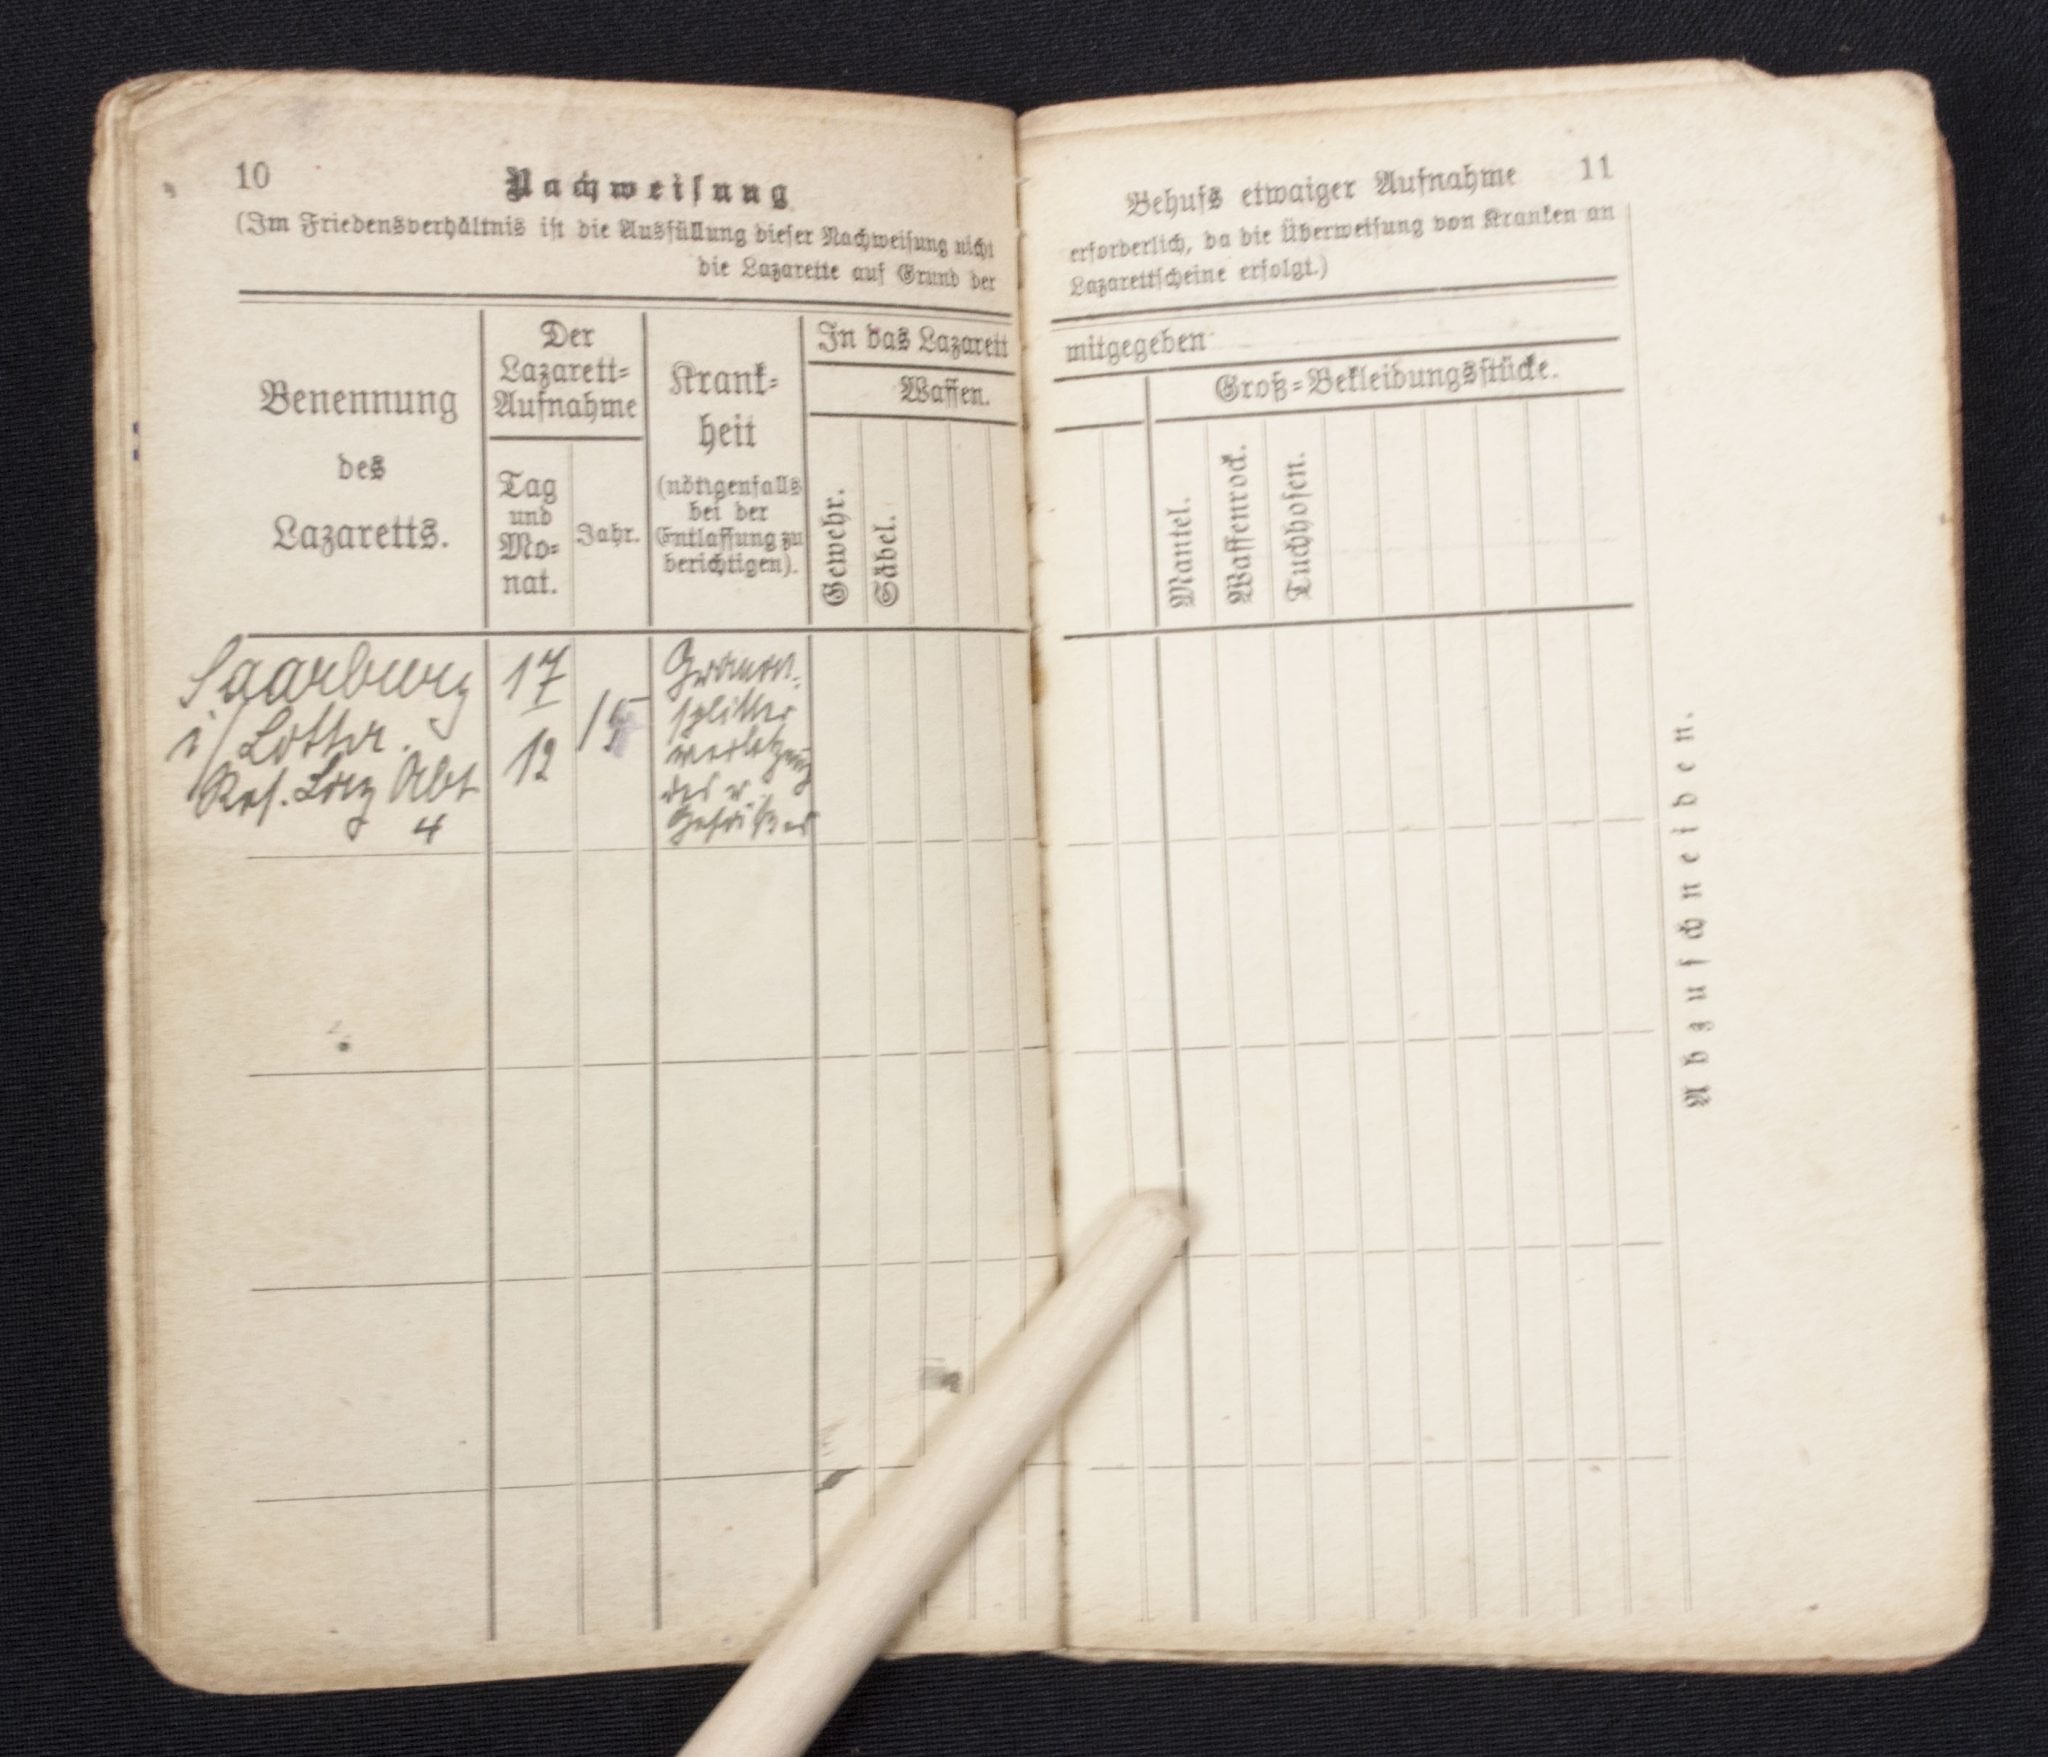 10
Nachweisung
(Im Friedensverhältnis ist die Ausfüllung dieser Nachweisung nicht
die Lazarette auf Grund der
Benennung
des
Lazaretts.
Der
Lazarett-
Aufnahme
Tag
und
Mo-
nat.
Jahr.
Krank-
heit
(nötigenfalls
bei der
Entlassung zu
berichtigen).
In das Lazarett
Waffen.
Gewehr.
Säbel.
Saarburg
i/ Lothr.
Res. Laz Abt
4
17
12
15
Granat-
splitter
verletzung
des r.
Gesäßes
Behufs etwaiger Aufnahme
11
erforderlich, da die Überweisung von Kranken an
Lazarettscheine erfolgt.)
mitgegeben
Groß-Bekleidungsstücke.
Mantel.
Waffenrock.
Tuchhosen.
Abzuschneiden.